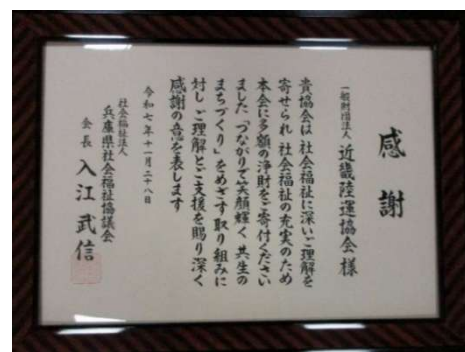 感謝
一般財団法人 近畿陸運協会様
貴協会は社会福祉に深いご理解を
寄せられ 社会福祉の充実のため
本会に多額の浄財をご寄付ください
ました「つながりで笑顔輝く 共生の
まちづくり」をめざす取り組みに
対し ご理解とご支援を賜り深く
感謝の意を表します
令和七年十一月二十八日
社会福祉法人
兵庫県社会福祉協議会
会長 入江武信